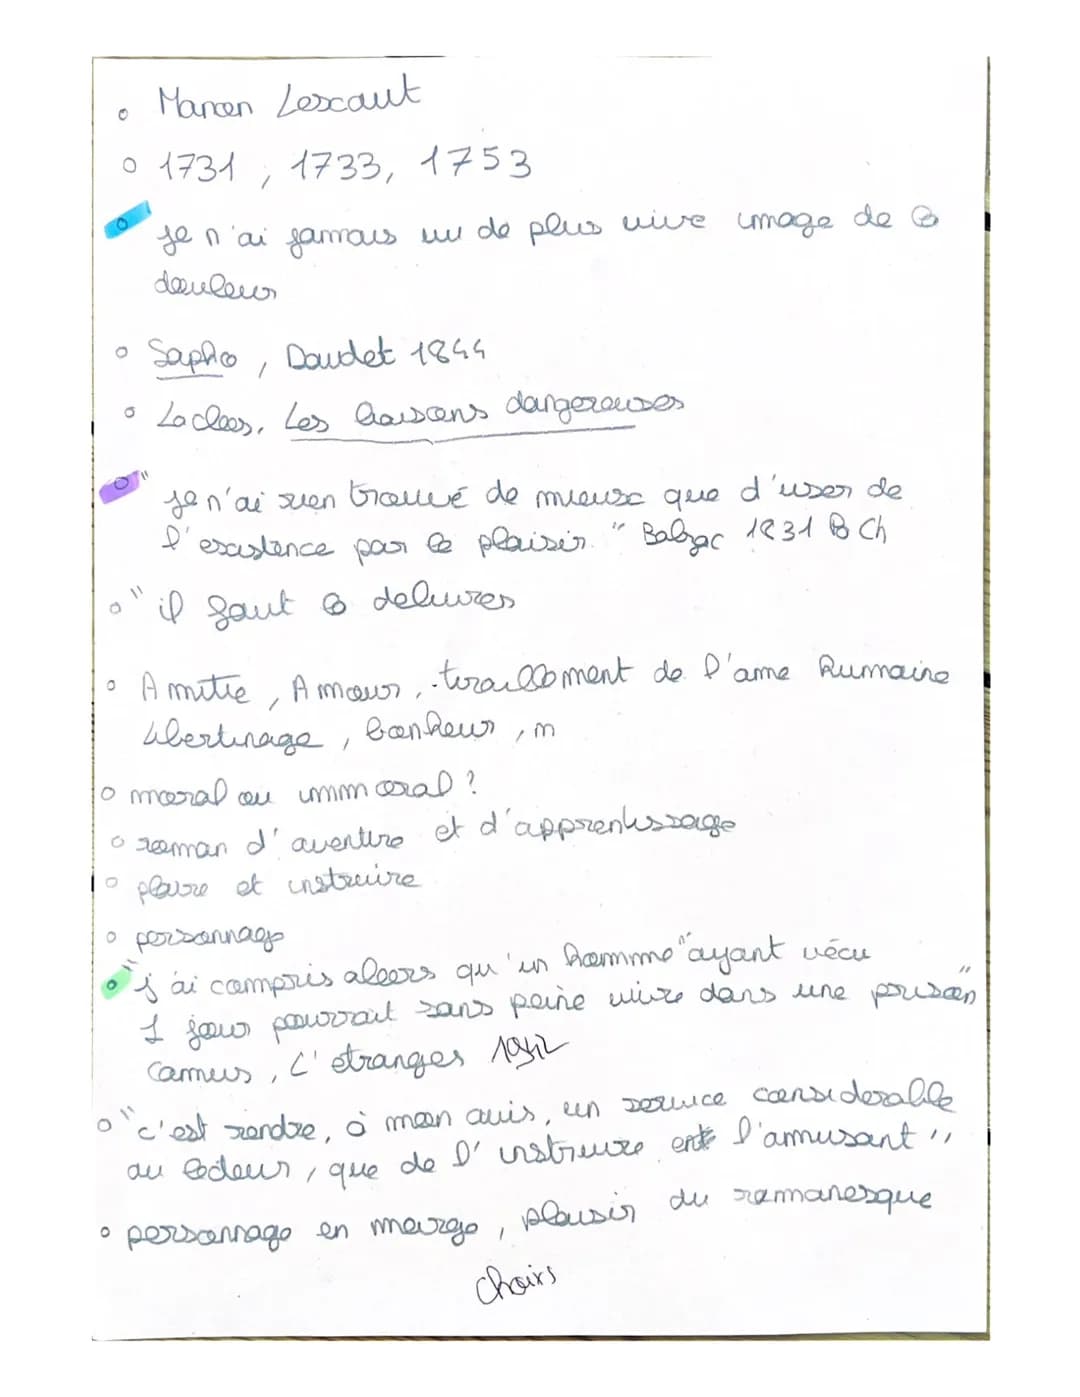 Manon Lescaut
1731, 1733, 1753
je n'ai jamais vu de plus vive image de la
douleur
Sapho, Daudet 1844
Laclos, Les liaisons dangereuses
"je n'ai rien trouvé de mieux que d'user de
l'existence par le plaisir." Balzac 1831 P Ch
"il faut la delivrer
Amitie, Amour, tiraillement de l'ame Humaine
libertinage, bonheur, m
moral ou immoral ?
roman d'aventure et d'apprentissage
plaire et instruire
personnage
"j'ai compris alors qu'un homme "ayant vécu
1 jour pourrait sans peine vivre dans une prison"
Camus, L'etranger 1942
"c'est rendre, à mon avis, un service considerable
au lecteur, que de l'instruire en l'amusant"
personnage en marge, plaisir du romanesque